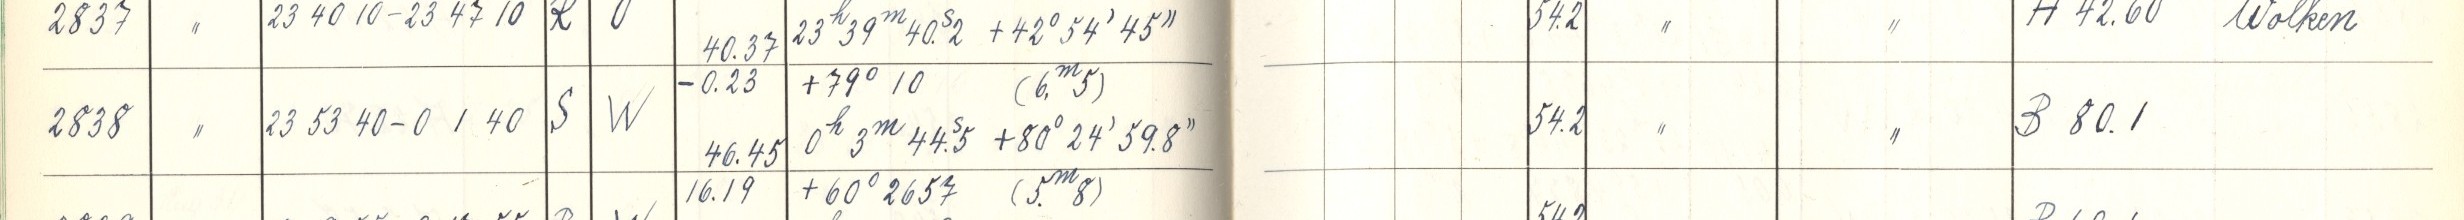 2837 " 23 40 10 - 23 47 10 R O 40.37 23ʰ39ᵐ40ˢ.2 +42° 54' 45" 54.2 " " A 42.60 Wolken
-0.23 +79° 10 (6ᵐ.5)
2838 " 23 53 40 - 0 1 40 S W 46.45 0ʰ 3ᵐ 44ˢ.5 +80° 24' 59.8" 54.2 " " B 80.1
16.19 +60° 2657 (5ᵐ.8)
54.2